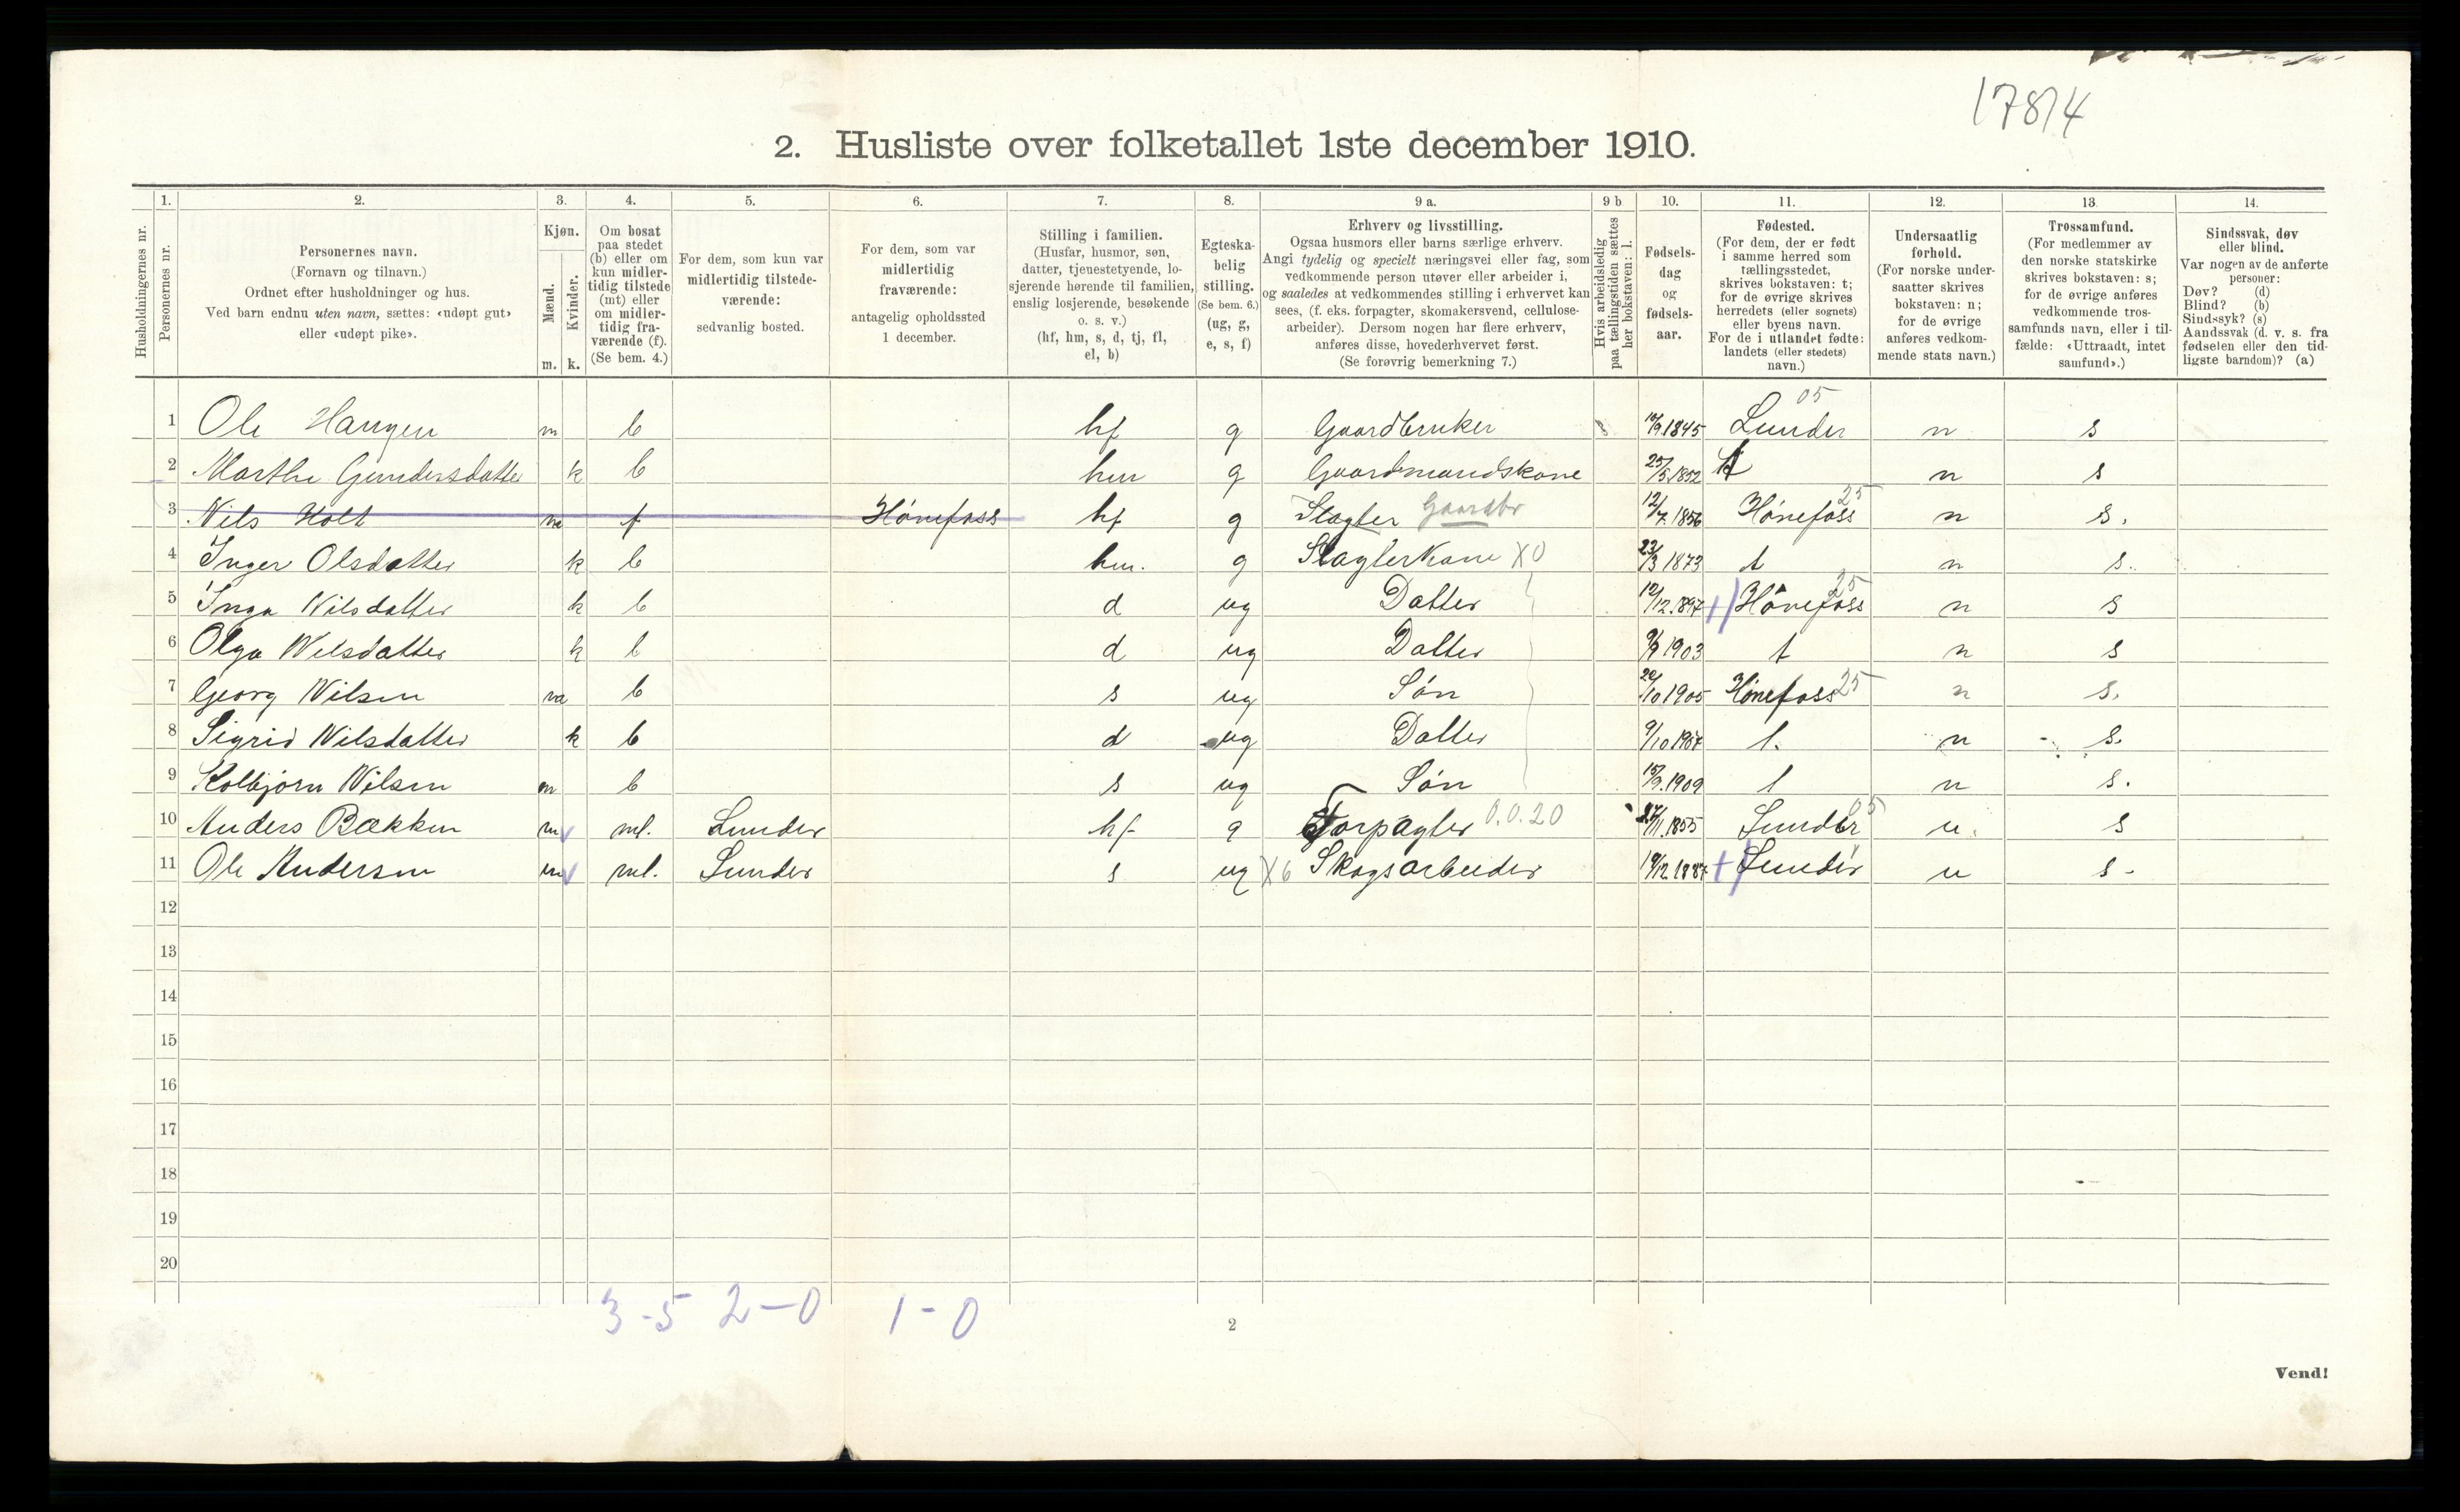 17814
2. Husliste over folketallet 1ste december 1910.
Husholdningernes nr.
1. Personernes nr.
2. Personernes navn.
(Fornavn og tilnavn.)
Ordnet efter husholdninger og hus.
Ved barn endnu uten navn, sættes: «udøpt gut»
eller «udøpt pike».
3. Kjøn.
Mænd. Kvinder.
m. k.
4. Om bosat
paa stedet
(b) eller om
kun midler-
tidig tilstede
(mt) eller
om midler-
tidig fra-
værende (f).
(Se bem. 4.)
5. For dem, som kun var
midlertidig tilstede-
værende:
sedvanlig bosted.
6. For dem, som var
midlertidig
fraværende:
antagelig opholdssted
1 december.
7. Stilling i familien.
(Husfar, husmor, søn,
datter, tjenestetyende, lo-
sjerende hørende til familien,
enslig losjerende, besøkende
o. s. v.)
(hf, hm, s, d, tj, fl,
el, b)
8. Egteska-
belig
stilling.
(Se bem. 6.)
(ug, g,
e, s, f)
9 a. Erhverv og livsstilling.
Ogsaa husmors eller barns særlige erhverv.
Angi tydelig og specielt næringsvei eller fag, som
vedkommende person utøver eller arbeider i,
og saaledes at vedkommendes stilling i erhvervet kan
sees, (f. eks. forpagter, skomakersvend, cellulose-
arbeider). Dersom nogen har flere erhverv,
anføres disse, hovederhvervet først.
(Se forøvrig bemerkning 7.)
9 b Hvis arbeidsledig
paa tællingstiden sættes
her bokstaven: l.
10. Fødsels-
dag
og
fødsels-
aar.
11. Fødested.
(For dem, der er født
i samme herred som
tællingsstedet,
skrives bokstaven: t;
for de øvrige skrives
herredets (eller sognets)
eller byens navn.
For de i utlandet fødte:
landets (eller stedets)
navn.)
12. Undersaatlig
forhold.
(For norske under-
saatter skrives
bokstaven: n;
for de øvrige
anføres vedkom-
mende stats navn.)
13. Trossamfund.
(For medlemmer av
den norske statskirke
skrives bokstaven: s;
for de øvrige anføres
vedkommende tros-
samfunds navn, eller i til-
fælde: «Uttraadt, intet
samfund».)
14. Sindssvak, døv
eller blind.
Var nogen av de anførte
personer:
Døv? (d)
Blind? (b)
Sindssyk? (s)
Aandssvak (d. v. s. fra
fødselen eller den tid-
ligste barndom)? (a)
1 Ole Haugen m b hf g Gaardbruker 1845 Lunder 05 n s
2 Marthe Gundersdatter k b hm g Gaardmandskone 25/5 1852 t n s
3 Nils Holt m f Hönefoss hf g Slagter Gaardbr 12/7 1856 Hönefoss 25 n s.
4 Inger Olsdatter k b hm. g Slagterkone X0 23/3 1873 t n s.
5 Inga Nilsdatter k b d ug Datter 12/12 1897 Hönefoss 25 n s
6 Olga Nilsdatter k b d ug Datter 1903 t n s
7 Georg Nilsen m b s ug Sön 10 1905 Hönefoss 25 n s.
8 Sigrid Nilsdatter k b d ug Datter 9/10 1907 t. n s.
9 Kolbjörn Nilsen m b s ug Sön 15/9 1909 t n s.
10 Anders Bækken m mt. Lunder hf g Forpagter 0.0.20 11 1855 Lunder 05 n. s
11 Ole Andersen m mt. Lunder s ug X6 Skogsarbeider 12 1887 Lunder n s-
12
13
14
15
16
17
18
19
20
3-5 2-0 1-0
2
Vend!